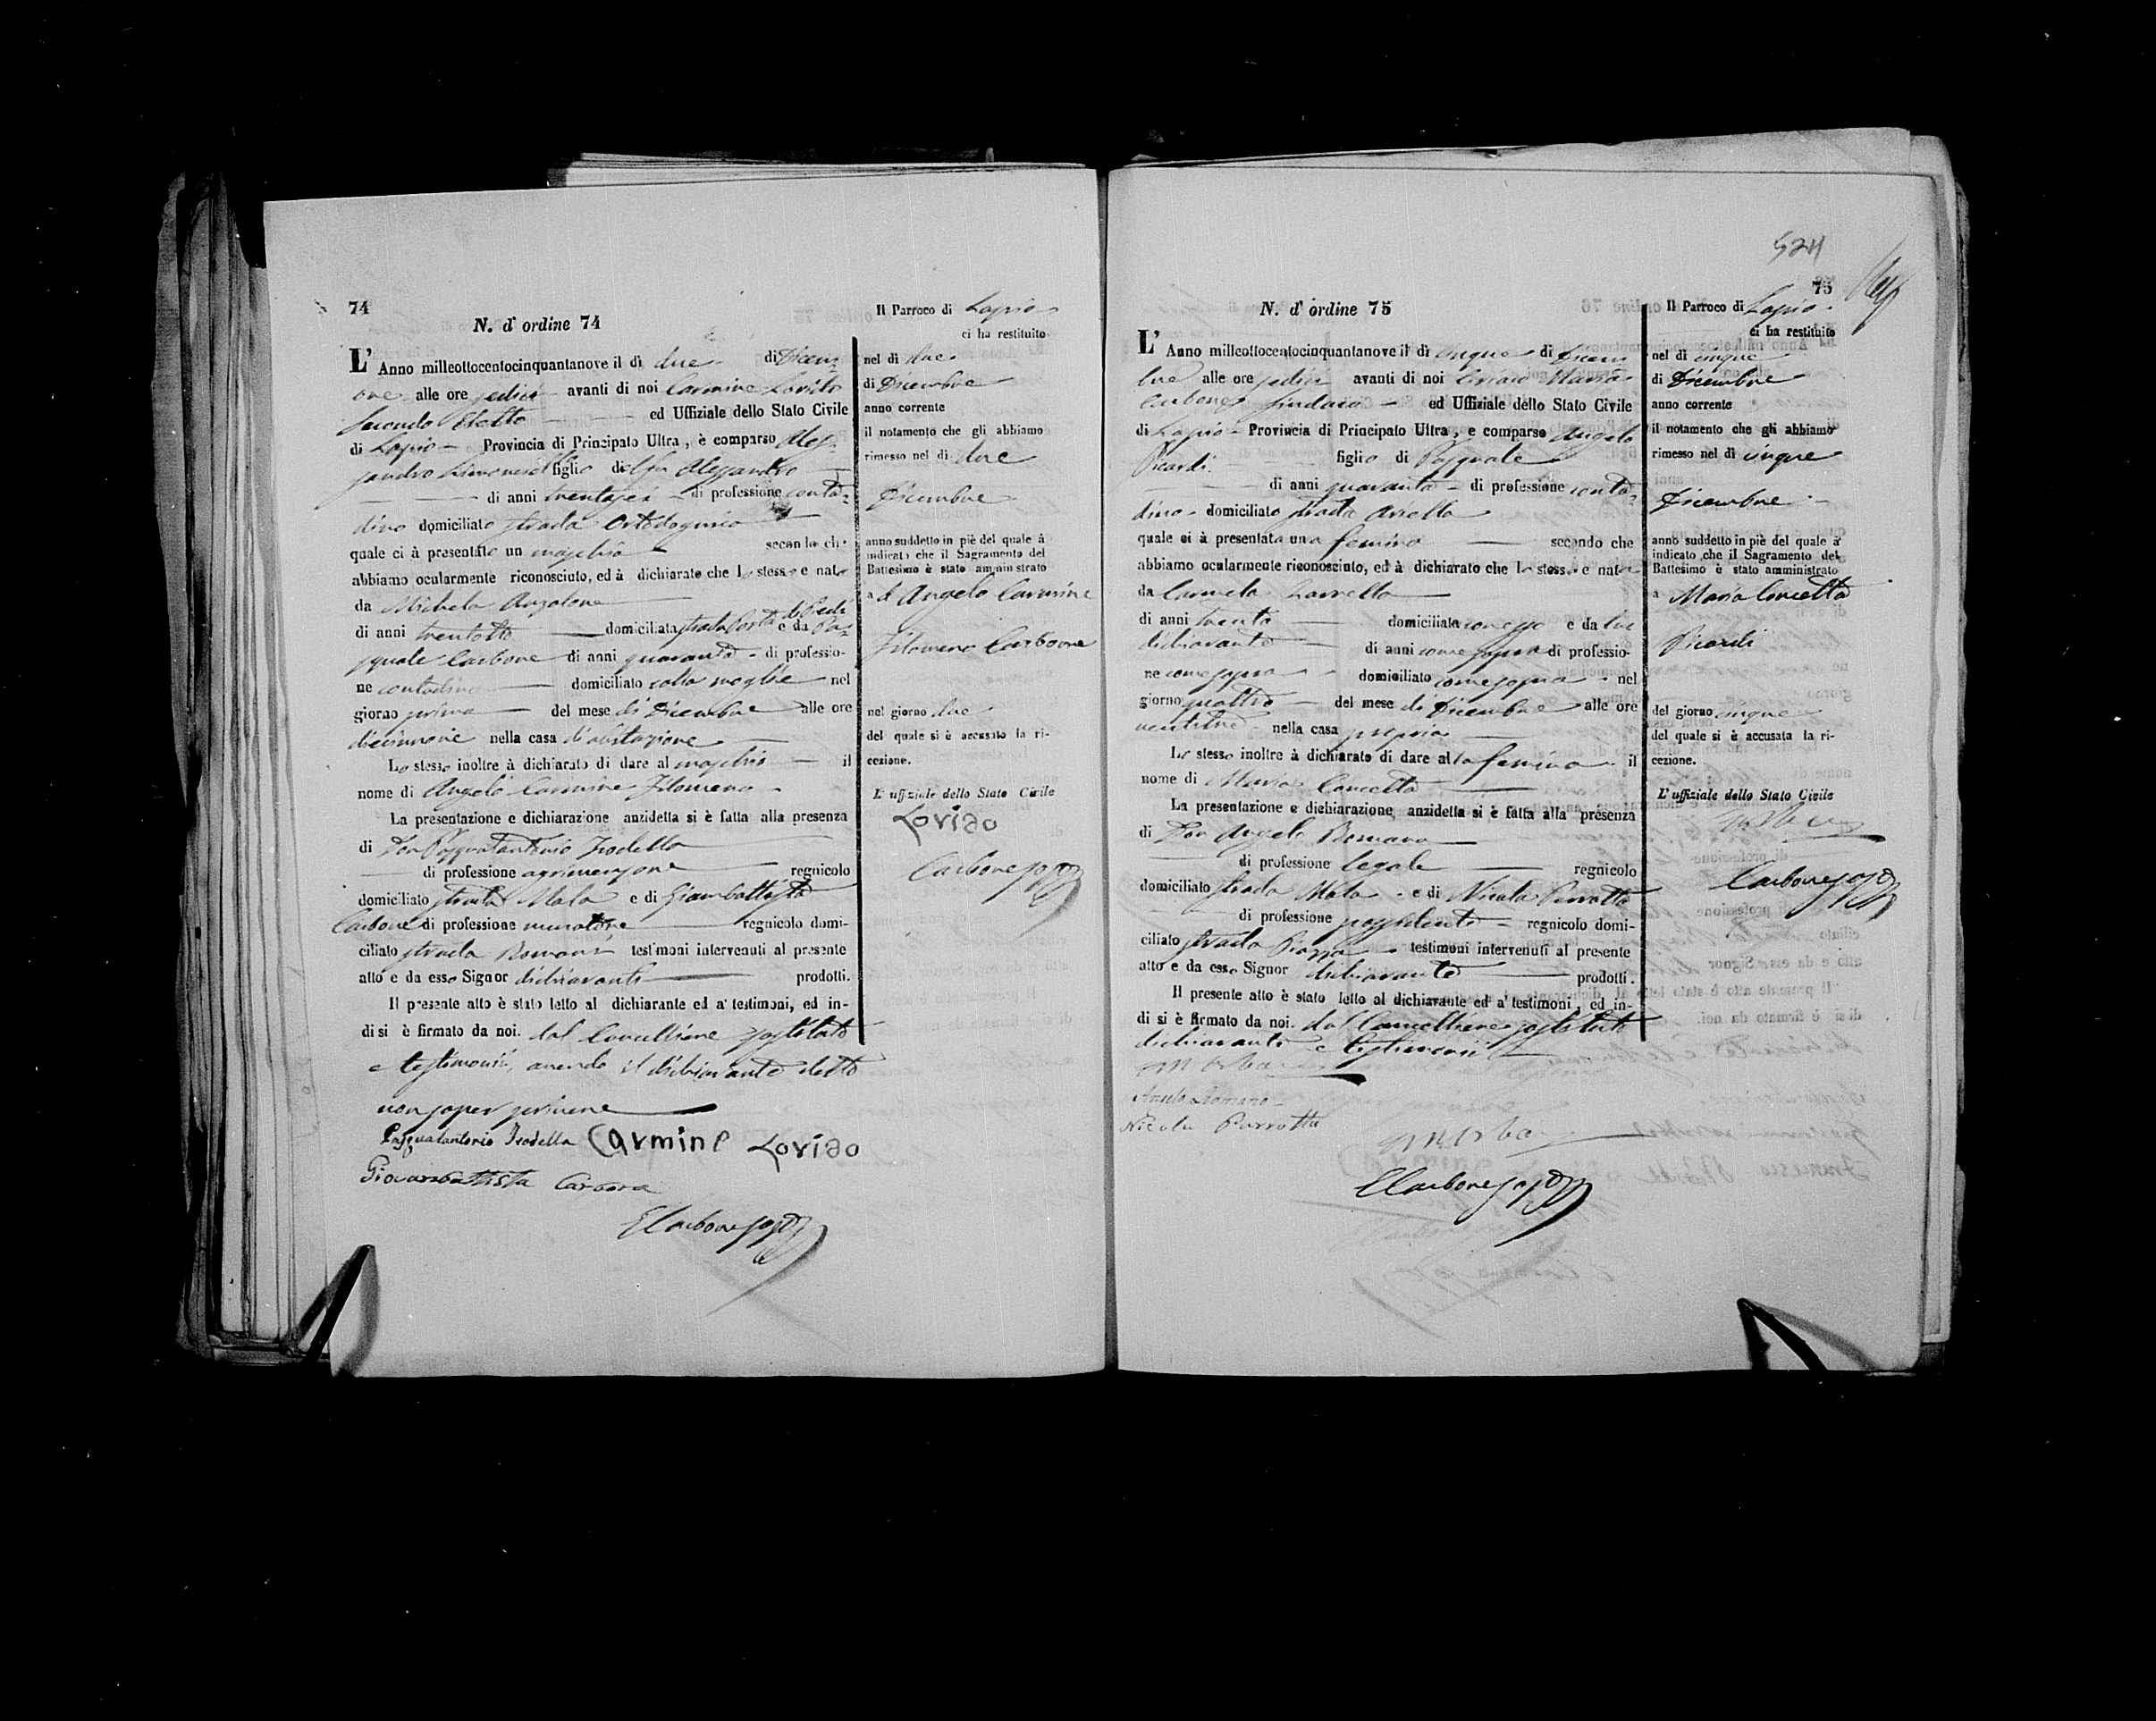 74
N. d' ordine 74
L' Anno milleottocentocinquantanove il dì due di Dicem-
bre alle ore sedici avanti di noi Carmine Lorido
Secondo Eletto ed Uffiziale dello Stato Civile
di Lapio Provincia di Principato Ultra, è comparso Ales-
sandro figlio del fu Alessandro
di anni trentasei di professione conta-
dino domiciliato strada
quale ci à presentato un maschio secondo che
abbiamo ocularmente riconosciuto, ed à dichiarato che lo stesso e nato
da Michela Anzalone
di anni trentotto domiciliata strada Porta di Piedi e da Pa-
squale Carbone di anni quaranta di professio-
ne contadino domiciliato colla moglie nel
giorno primo del mese di Dicembre alle ore
diecinnove nella casa di abitazione
Lo stesso inoltre à dichiarato di dare al maschio il
nome di Angelo Carmine Filomeno
La presentazione e dichiarazione anzidetta si è fatta alla presenza
di Don Pasqualantonio Trodella
di professione agrimensore regnicolo
domiciliato strada Mala e di Giambattista
Carbone di professione muratore regnicolo domi-
ciliato strada Romani testimoni intervenuti al presente
atto e da esso Signor dichiarante prodotti.
Il presente atto è stato letto al dichiarante ed a' testimoni, ed in-
di si è firmato da noi. dal Cancelliere sostituto
e testimonii, avendo il dichiarante detto
non saper scrivere
Pasqualantonio Trodella Carmine Lorido
Giovanbattista Carbone
E Carbone sosto
Il Parroco di Lapio
ci ha restituito
nel dì due
di Dicembre
anno corrente
il notamento che gli abbiamo
rimesso nel dì due
Dicembre
anno suddetto in piè del quale à
indicato che il Sagramento del
Battesimo è stato amministrato
a d Angelo Carmine
Filomeno Carbone
nel giorno due
del quale si è accusato la ri-
cezione.
L' uffiziale dello Stato Civile
Lorido
Carbone sosto
524
75
N. d' ordine 75
L' Anno milleottocentocinquantanove il dì cinque di Dicem
bre alle ore sedici avanti di noi Maria
Carbone Sindaco ed Uffiziale dello Stato Civile
di Lapio Provincia di Principato Ultra, e comparso Angelo
Picardi figlio di Pasquale
di anni quaranta di professione conta-
dino domiciliato strada Ariella
quale ci à presentata una femina secondo che
abbiamo ocularmente riconosciuto, ed à dichiarato che la stessa e nata
da Carmela
di anni trenta domiciliata e da lui
dichiarante di anni come sopra di professio-
ne come sopra domiciliato come sopra nel
giorno quattro del mese di Dicembre alle ore
ventitre nella casa propria
Lo stesso inoltre à dichiarato di dare alla femina il
nome di Maria Concetta
La presentazione e dichiarazione anzidetta si è fatta alla presenza
di Don Angelo Romano
di professione legale regnicolo
domiciliato strada Mala e di Nicola Perrotta
di professione possidente regnicolo domi-
ciliato strada Piazza testimoni intervenuti al presente
atto e da esso Signor dichiarante prodotti.
Il presente atto è stato letto al dichiarante ed a' testimoni, ed in-
di si è firmato da noi. dal Cancelliere sostituto
dichiarante e testimonii
Angelo Romano
Nicola Perrotta
E Carbone sosto
Il Parroco di Lapio
ci ha restituito
nel dì cinque
di Dicembre
anno corrente
il notamento che gli abbiamo
rimesso nel dì cinque
Dicembre
anno suddetto in piè del quale à
indicato che il Sagramento del
Battesimo è stato amministrato
a Maria Concetta
Picardi
del giorno cinque
del quale si è accusata la ri-
cezione.
L' uffiziale dello Stato Civile
Carbone sosto